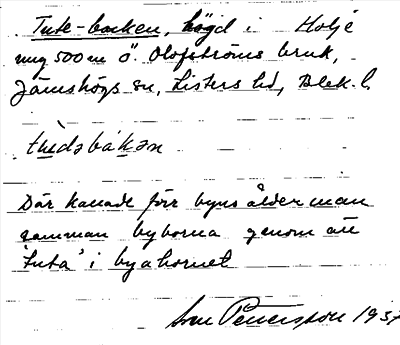 Tute-backen, högd i Holje
ung 500 m ö. Olofströms bruk,
Jämshögs sn, Listers hd, Blek. l.
Där kallade förr byns ålderman
samman byborna genom att
'tuta' i byahornet
Sven Petersson 1937